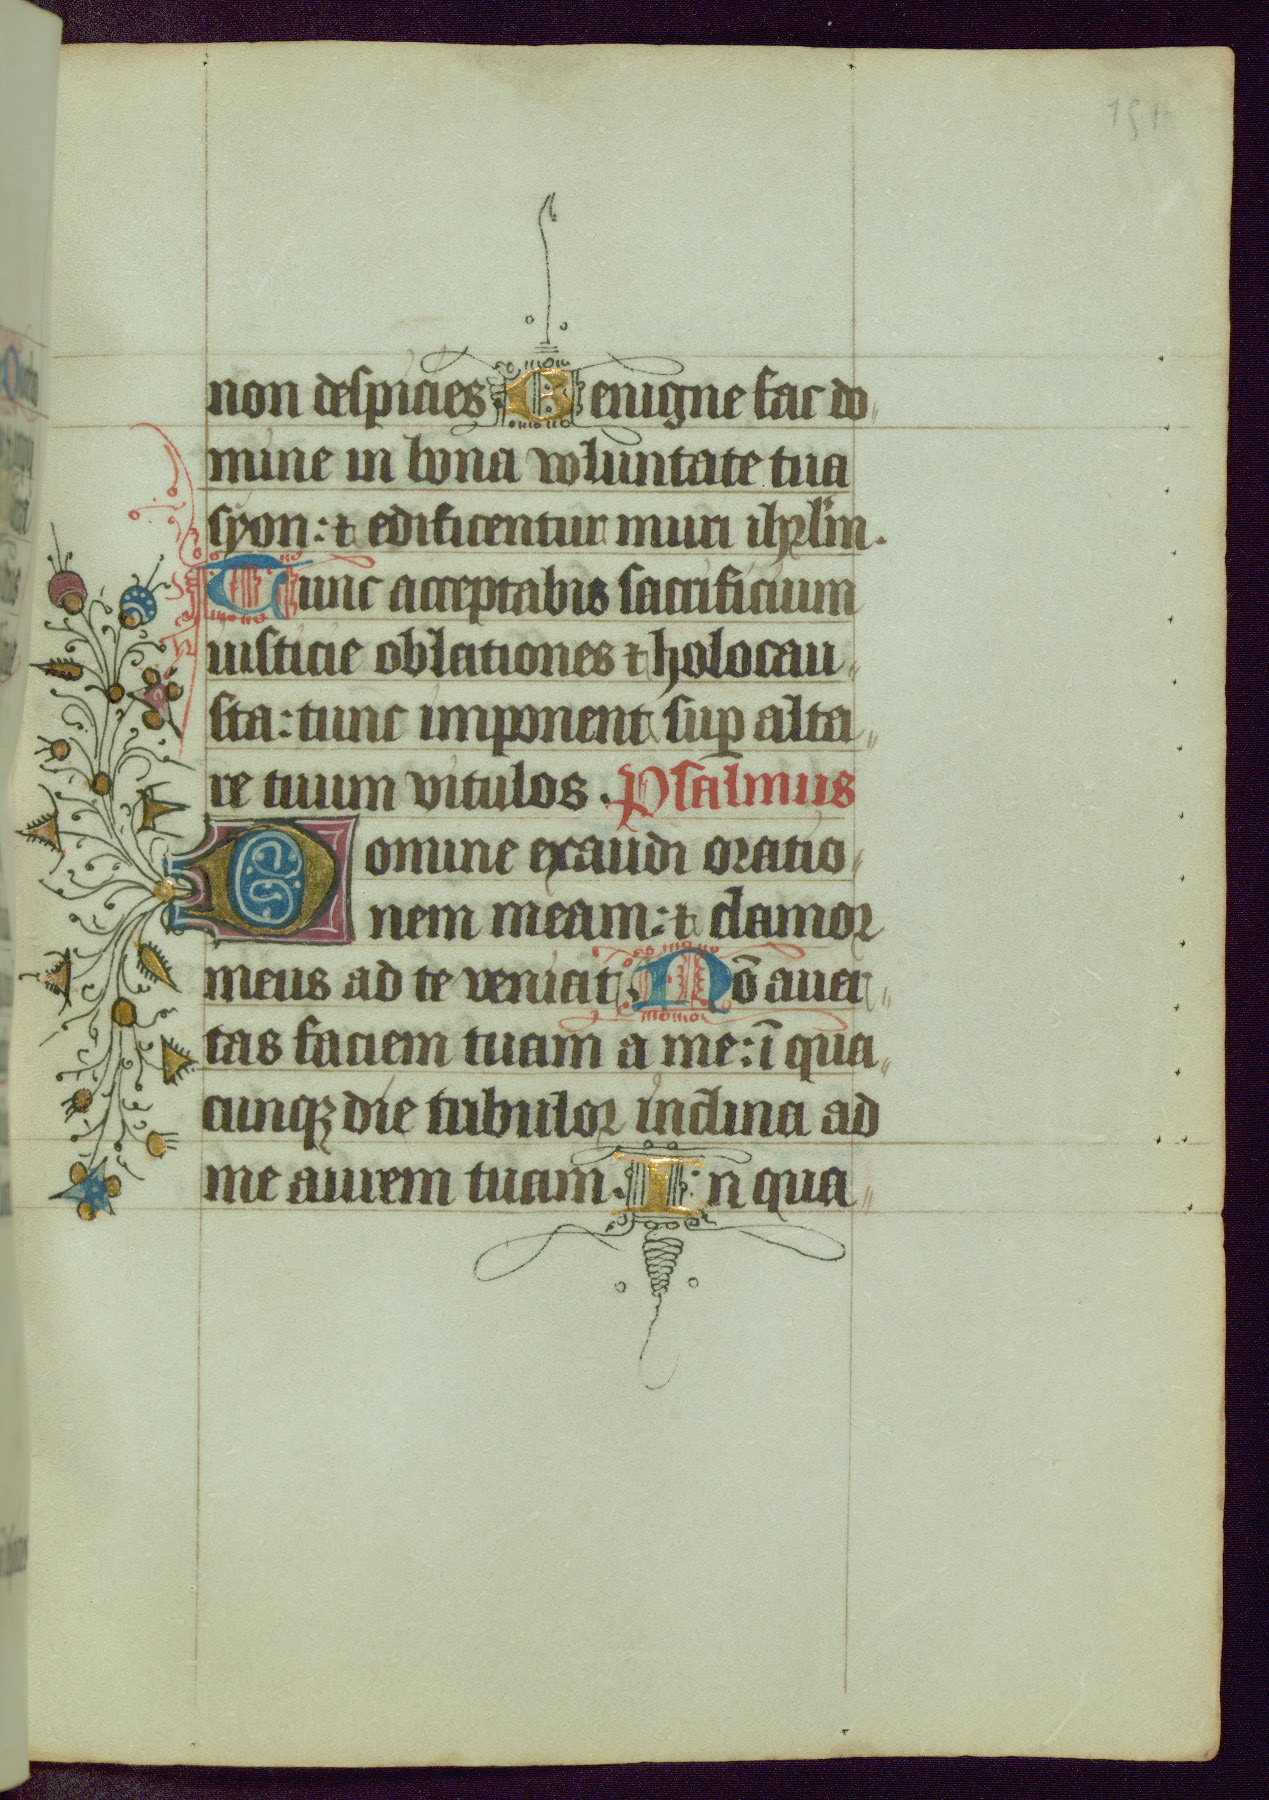 non despicies Benigne fac do〃
mine in bona voluntate tua
syon: ⁊ edificentur muri ihrl'm.
Tunc acceptabis sacrificium
iusticie oblationes ⁊ holocau〃
sta: tunc imponent sup̱ alta〃
re tuum vitulos. Psalmus
Domine exaudi oratio〃
nem meam: ⁊ clamor
meus ad te veniat. Nō auer〃
tas faciem tuam a me: ī qua〃
cunqꝫ die tribulor inclina ad
me aurem tuam. In qua〃